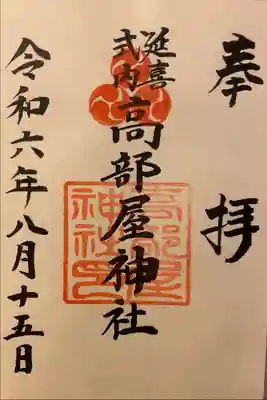 奉拝
延喜
式内
高部屋神社
高部屋
神社之印
令和六年八月十五日